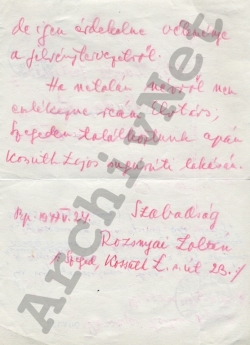 de igen érdekelne véleménye
a jelvénytervezetről.
Ha netalán névről nem
emlékezne reám Elvtárs,
Szegeden találkoztunk apám
Kossuth Lajos sugárúti lakásán.
Szabadság
Rozsnyai Zoltán
Szeged, Kossuth L. s. út 23.
ArchivNet